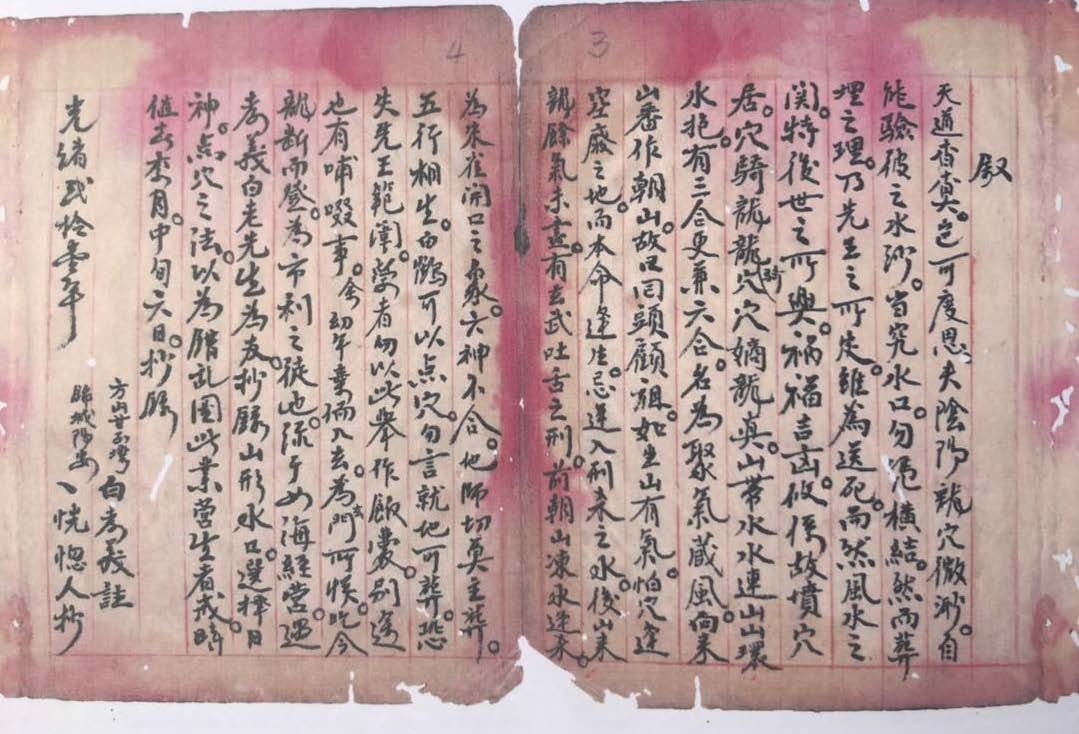 3
叙
天道杳冥。豈可度思。夫陰陽龍穴微渺。自
能驗彼之水沙。當究水口。勿凭橫結。然而葬
埋之理。乃先王之所定。雖為送死。而然風水之
関。特後世之所興。禍福吉凶攸係。故墳穴
居。穴騎龍龍穴穴嫡龍真。山帶水水連山山環
水抱。有三合更兼六合。名為聚氣藏風。向来
山番作朝山。故曰囘頭顧祖。如坐山有氣。怕穴逢
空廢之地。而本命逢生。忌逆入刑来之水。後山来
龍餘氣未盡。有玄武吐舌之刑。前朝山凍水逆来。
4
為朱雀開口之象。六神不合。地師切莫主葬。
五行相生。白鶴可以点穴。勿言就地可葬。恐
失先王範圍。學者勿以此舉作飯囊。别送
也有哺啜事。今幼年棄儒入玄。為玄門所悮。
龍斷而登。為市利之徒也。經營。遇
孝義白老先生為友。抄錄山形水口。選擇日
神。点穴之法。以為此業營生者哉。時
值去季月。中旬六日。抄
光緒貳拾叁年
方山甘 灣白孝義註
臨城 恍惚人抄